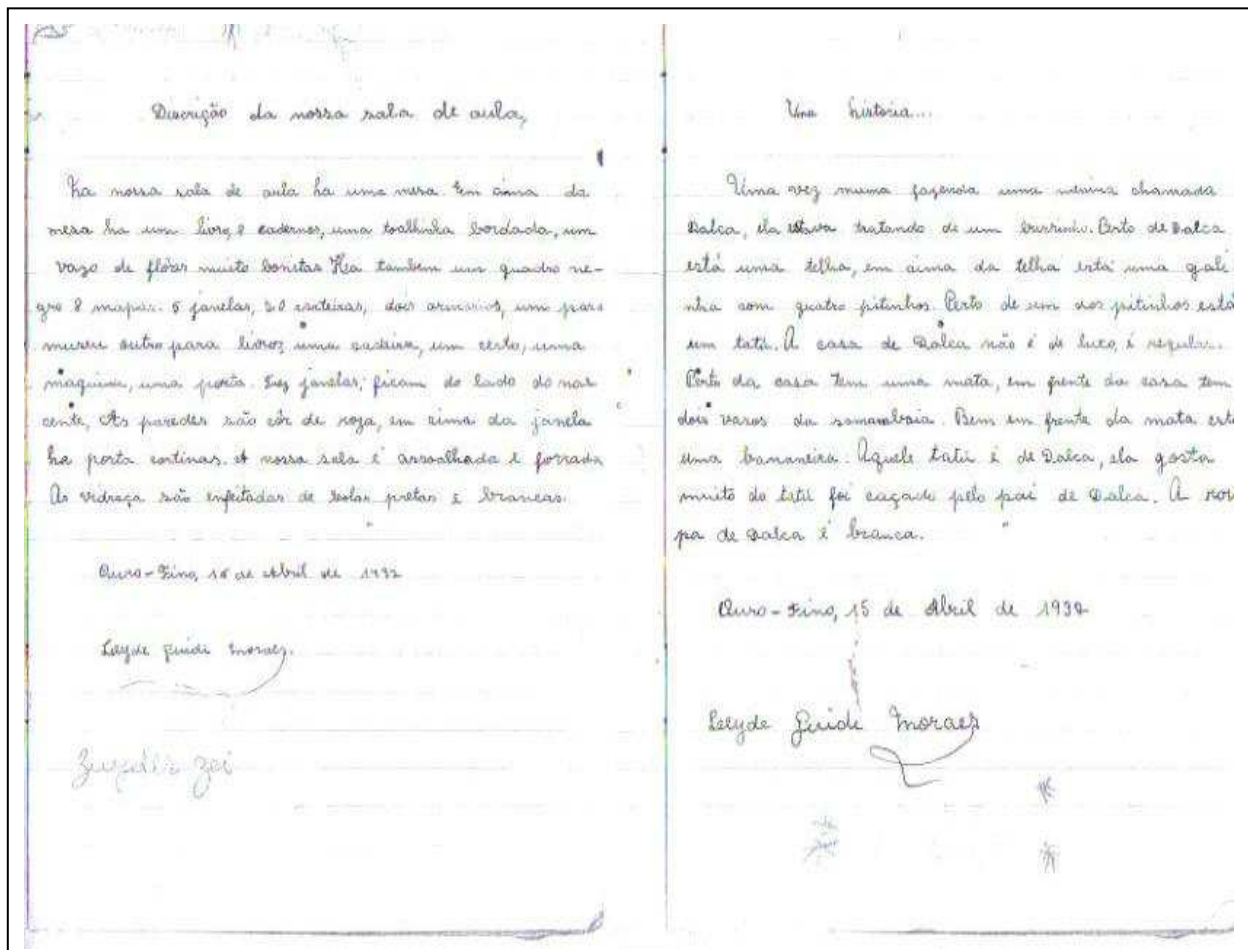 Discrição da nossa sala de aula,
Na nossa sala de aula ha uma mesa em cima da
mesa ha um livro, 8 cadernos, uma toalhinha bordada, um
vazo de flôres muito bonitas Ha tambem um quadro ne-
gro 8 mapas. 5 janelas, 20 carteiras, dois armarios, um para
museu outro para livros, uma cadeira, um cesto, uma
maquina, uma porta. Trez janelas, ficam do lado do nas
cente, As paredes são côr de roza, em cima da janela
ha porta cortinas. A nossa sala é assoalhada e forrada
As vidraça são enfeitadas de bolas pretas e brancas.
Ouro-Fino, 15 de Abril de 1932
Leyde Guidi Moraes.
Uma historia...
Uma vez numa fazenda uma menina chamada
Dalca, ela estava tratando de um burrinho. Perto de Dalca
está uma telha, em cima da telha está uma gali
nha com quatro pitinhos. Perto de um dos pitinhos está
um tatú. A casa de Dalca não é de luco, é regular.
Perto da casa tem uma mata, em frente da casa tem
dois vasos da samambaia. Bem em frente da mata está
uma bananeira. Aquele tatú é de Dalca, ela gosta
muito do tatú foi caçado pelo pai de Dalca. A rou
pa de Dalca é branca.
Ouro-Fino, 15 de Abril de 1932
Leyde Guidi Moraes